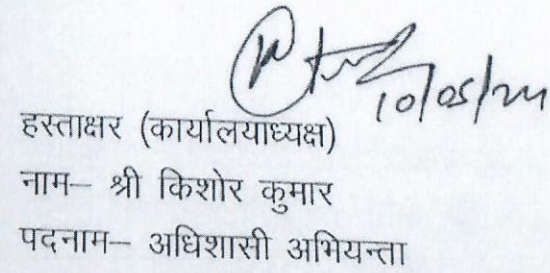 10/05/24
हस्ताक्षर (कार्यालयाध्यक्ष)
नाम– श्री किशोर कुमार
पदनाम– अधिशासी अभियन्ता